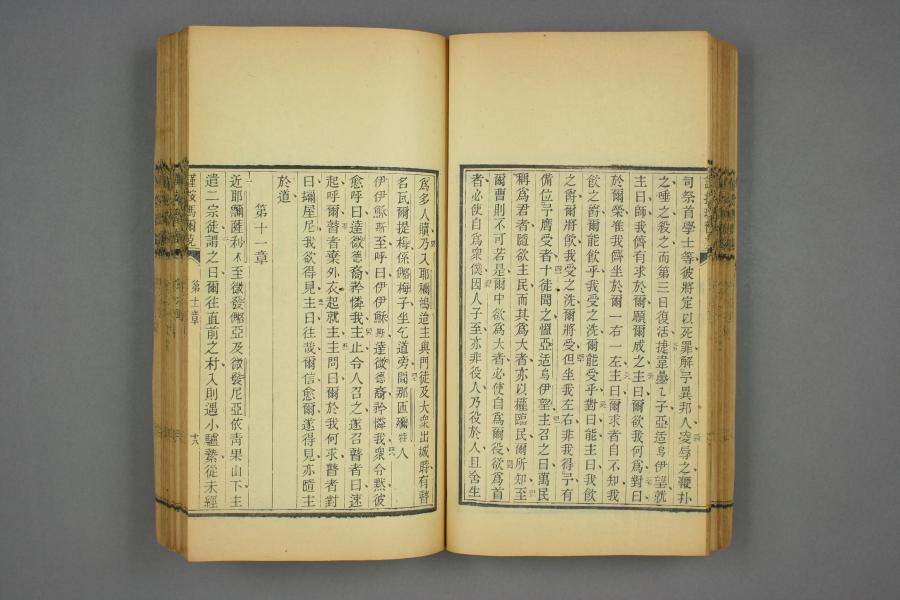 司祭首學士等彼將定以死罪解予異邦人凌辱之鞭扑
之唾之殺之而第三日復活捷韋曡乙子亞适烏伊望就
主曰師我儕有求於爾願爾成之主曰爾欲我何爲對曰
於爾榮准我儕坐於爾一右一左主曰爾求者自不知我
飲之爵爾能飲乎我受之洗爾能受乎對曰能主曰我飲
之爵爾將飲我受之洗爾將受但坐我左右非我得予有
備位予膺受者十徒聞之慍亞适烏伊望主召之曰萬民
稱爲君者隨欲主民而其爲大者亦以權臨民爾所知至
爾曹則不可若是爾中欲爲大者必使自爲爾役欲爲首
者必使自爲衆僕因人子至亦非役人乃役於人且舍生
爲多人贖乃入耶 主與門徒及大衆出城時有瞽
名瓦爾提梅係 梅子坐乞道旁聞那匝 人
伊伊穌斯至呼曰伊伊穌斯達微德裔矜憐我衆令黙彼
愈呼曰達微德裔矜憐我主止令人召之遂召瞽者曰速
起呼爾瞽者棄外衣起就主主問曰爾於我何求瞽者對
曰 屋尼我欲得見主曰往哉爾信愈爾遂得見亦隨主
於道
第十一章
一近耶 至微發 亞及微發尼亞依靑果山下主
遣二宗徒謂之曰爾往直前之村入則遇小驢縶從未經
謹按馬爾克
第十一章
十八